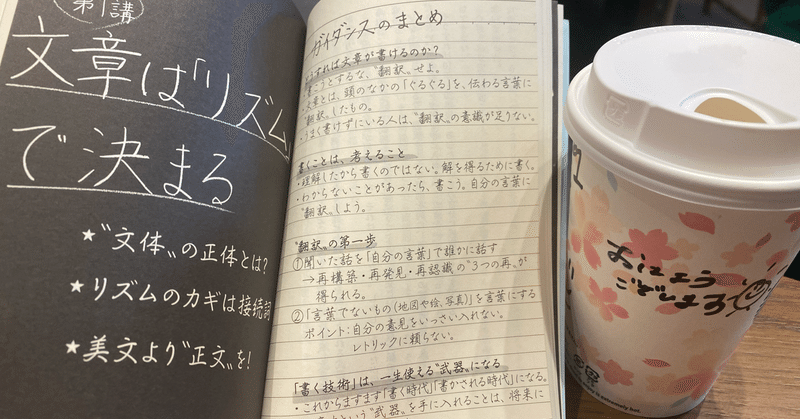 第1講
文章は「リズム」
で決まる
★“文体”の正体とは?
★リズムのカギは接続詞
★美文より“正文”を!
ガイダンスのまとめ
すれば文章が書けるのか?
こうとするな、“翻訳”せよ。
・文章とは、頭のなかの「ぐるぐる」を、伝わる言葉に
“翻訳”したもの。
・うまく書けずにいる人は、“翻訳”の意識が足りない。
書くことは、考えること
・理解したから書くのではない。解を得るために書く。
・わからないことがあったら、書こう。自分の言葉に
“翻訳”しよう。
“翻訳”の第一歩
①聞いた話を「自分の言葉」で誰かに話す
→再構築・再発見・再認識の“3つの再”が
得られる。
②「言葉でないもの(地図や絵、写真)」を言葉にする
ポイント:自分の意見をいっさい入れない。
レトリックに頼らない。
「書く技術」は、一生使える“武器”になる
・これからますます「書く時代」「書かされる時代」になる。
という“武器”を手に入れることは、将来に
おはよう
ございます